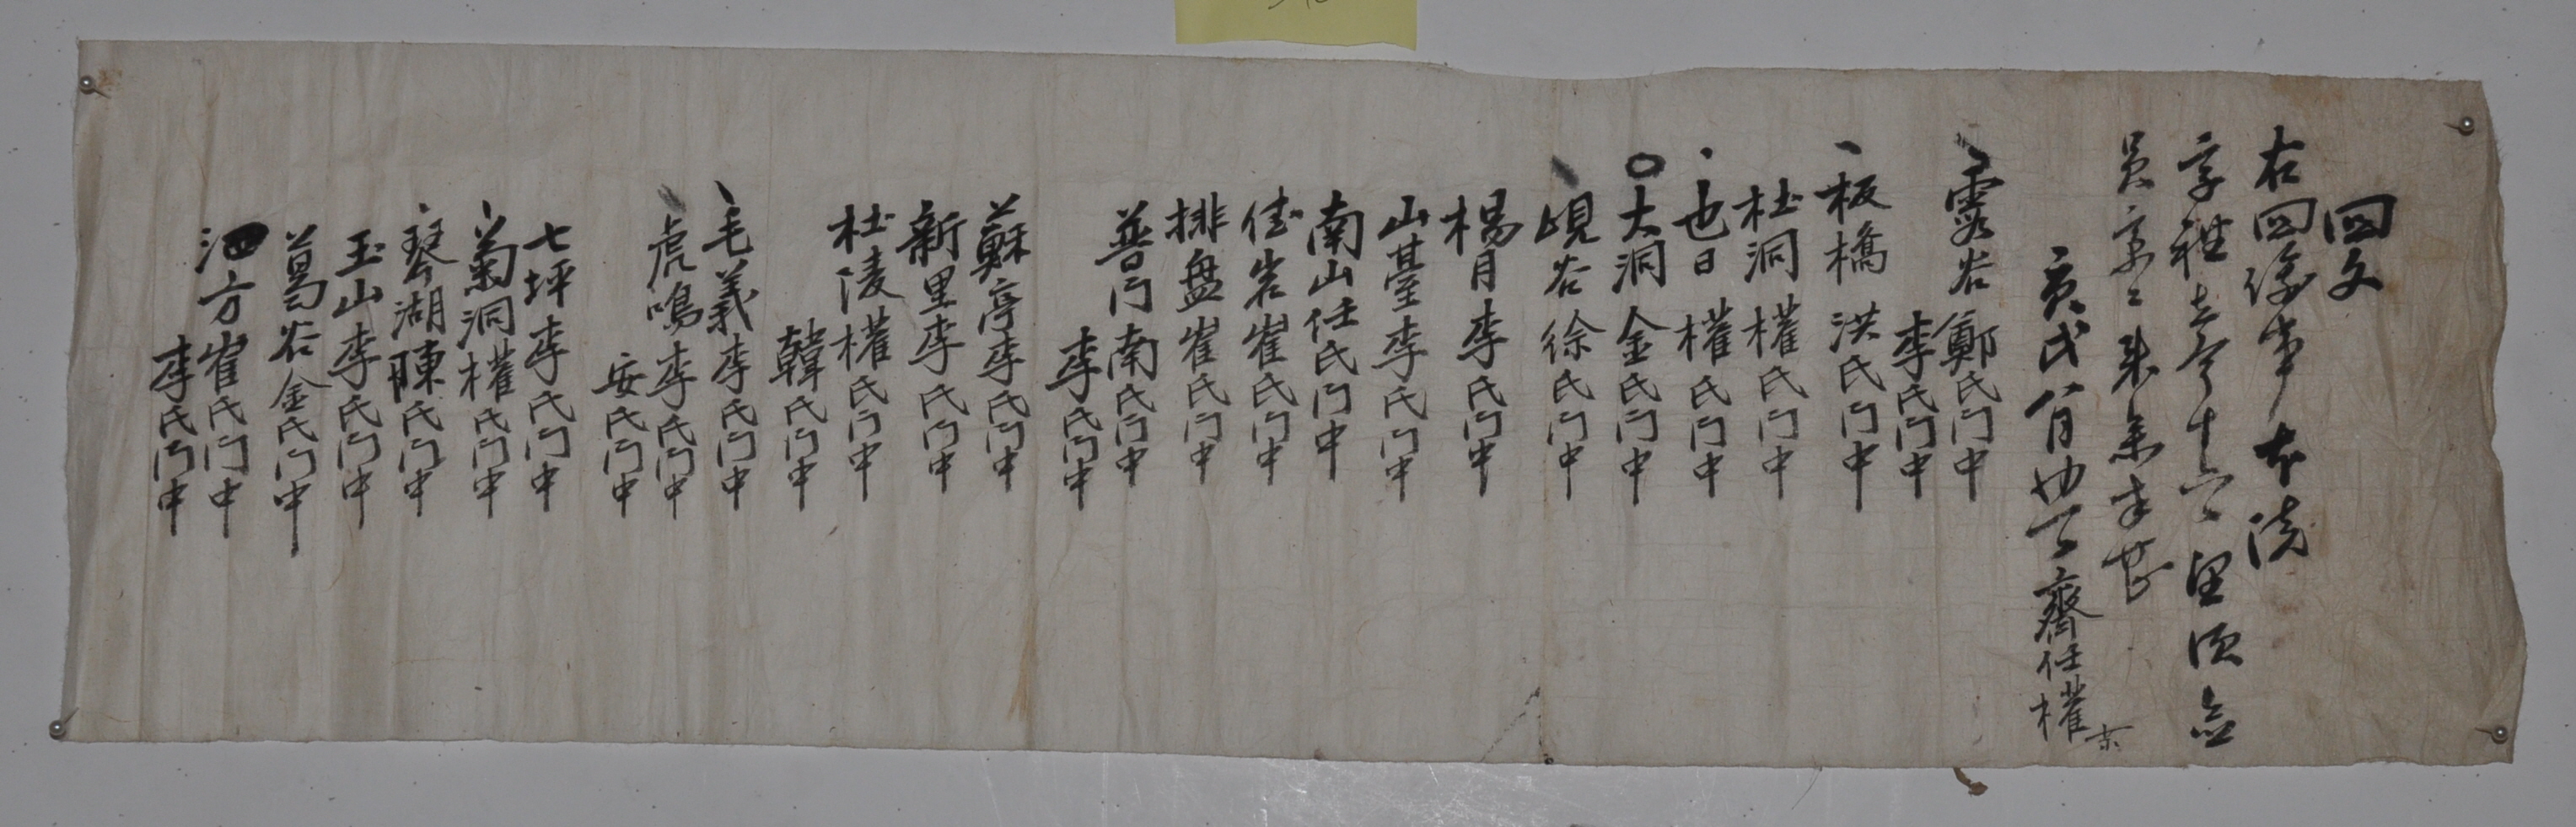 回文
右回諭事本院
享禮去今十六日
員
庚戌八月卄 齋任權
雲谷鄭氏門中
李氏門中
板橋洪氏門中
杜洞權氏門中
也日權氏門中
大洞金氏門中
峴谷徐氏門中
楊月李氏門中
山基李氏門中
南山任氏門中
佳岩崔氏門中
排盤崔氏門中
普門南氏門中
李氏門中
蘇亭李氏門中
新里李氏門中
杜陵權氏門中
韓氏門中
毛義李氏門中
虎鳴李氏門中
安氏門中
七坪李氏門中
菊洞權氏門中
琴湖陳氏門中
玉山李氏門中
葛谷金氏門中
方崔氏門中
李氏門中